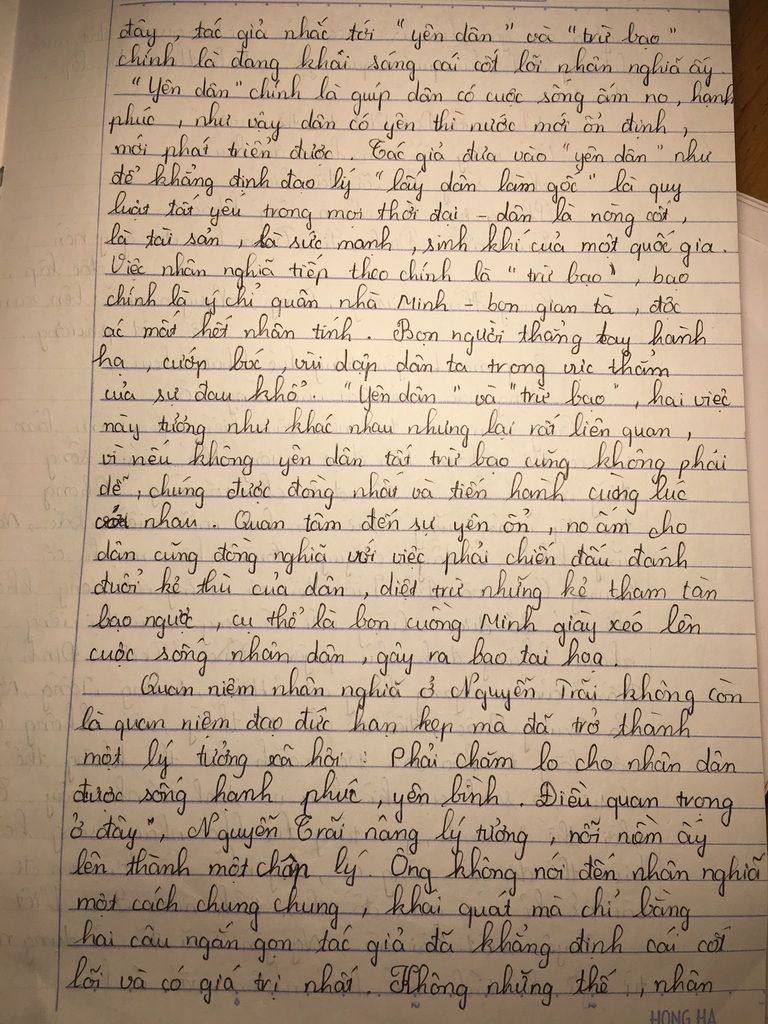 đây, tác giả nhắc tới "yên dân" và "trừ bạo"
chính là đang khơi sáng cái cốt lõi nhân nghĩa ấy.
"Yên dân" chính là giúp dân có cuộc sống ấm no, hạnh
phúc, như vậy dân có yên thì nước mới ổn định,
mới phát triển được. Tác giả đưa vào "yên dân" như
để khẳng định đạo lý "lấy dân làm gốc" là quy
luật tất yếu trong mọi thời đại - dân là nòng cốt,
là tài sản, là sức mạnh, sinh khí của một quốc gia.
Việc nhân nghĩa tiếp theo chính là "trừ bạo", bạo
chính là ý chỉ quân nhà Minh - bọn gian tà, độc
ác mất hết nhân tính. Bọn người thẳng tay hành
hạ, cướp bóc, vùi dập dân ta trong vực thẳm
của sự đau khổ. "Yên dân" và "trừ bạo", hai việc
này tưởng như khác nhau nhưng lại rất liên quan,
vì nếu không yên dân tất trừ bạo cũng không phải
dễ, chúng được đồng nhất và tiến hành cùng lúc
nhau. Quan tâm đến sự yên ổn, no ấm cho
dân cũng đồng nghĩa với việc phải chiến đấu đánh
đuổi kẻ thù của dân, diệt trừ những kẻ tham tàn
bạo ngược, cụ thể là bọn cuồng Minh giày xéo lên
cuộc sống nhân dân, gây ra bao tai họa.
Quan niệm nhân nghĩa ở Nguyễn Trãi không còn
là quan niệm đạo đức hạn hẹp mà đã trở thành
một lý tưởng xã hội: Phải chăm lo cho nhân dân
được sống hạnh phúc, yên bình. Điều quan trọng
ở đây", Nguyễn Trãi nâng lý tưởng, nỗi niềm ấy
lên thành một chân lý. Ông không nói đến nhân nghĩa
một cách chung chung, khái quát mà chỉ bằng
hai câu ngắn gọn tác giả đã khẳng định cái cốt
lõi và có giá trị nhất. Không những thế, nhân
HONG HA